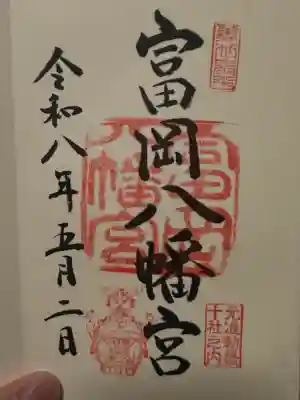 元准勅祭
十社之内
富岡八幡宮
富岡
八幡宮
令和八年五月二日